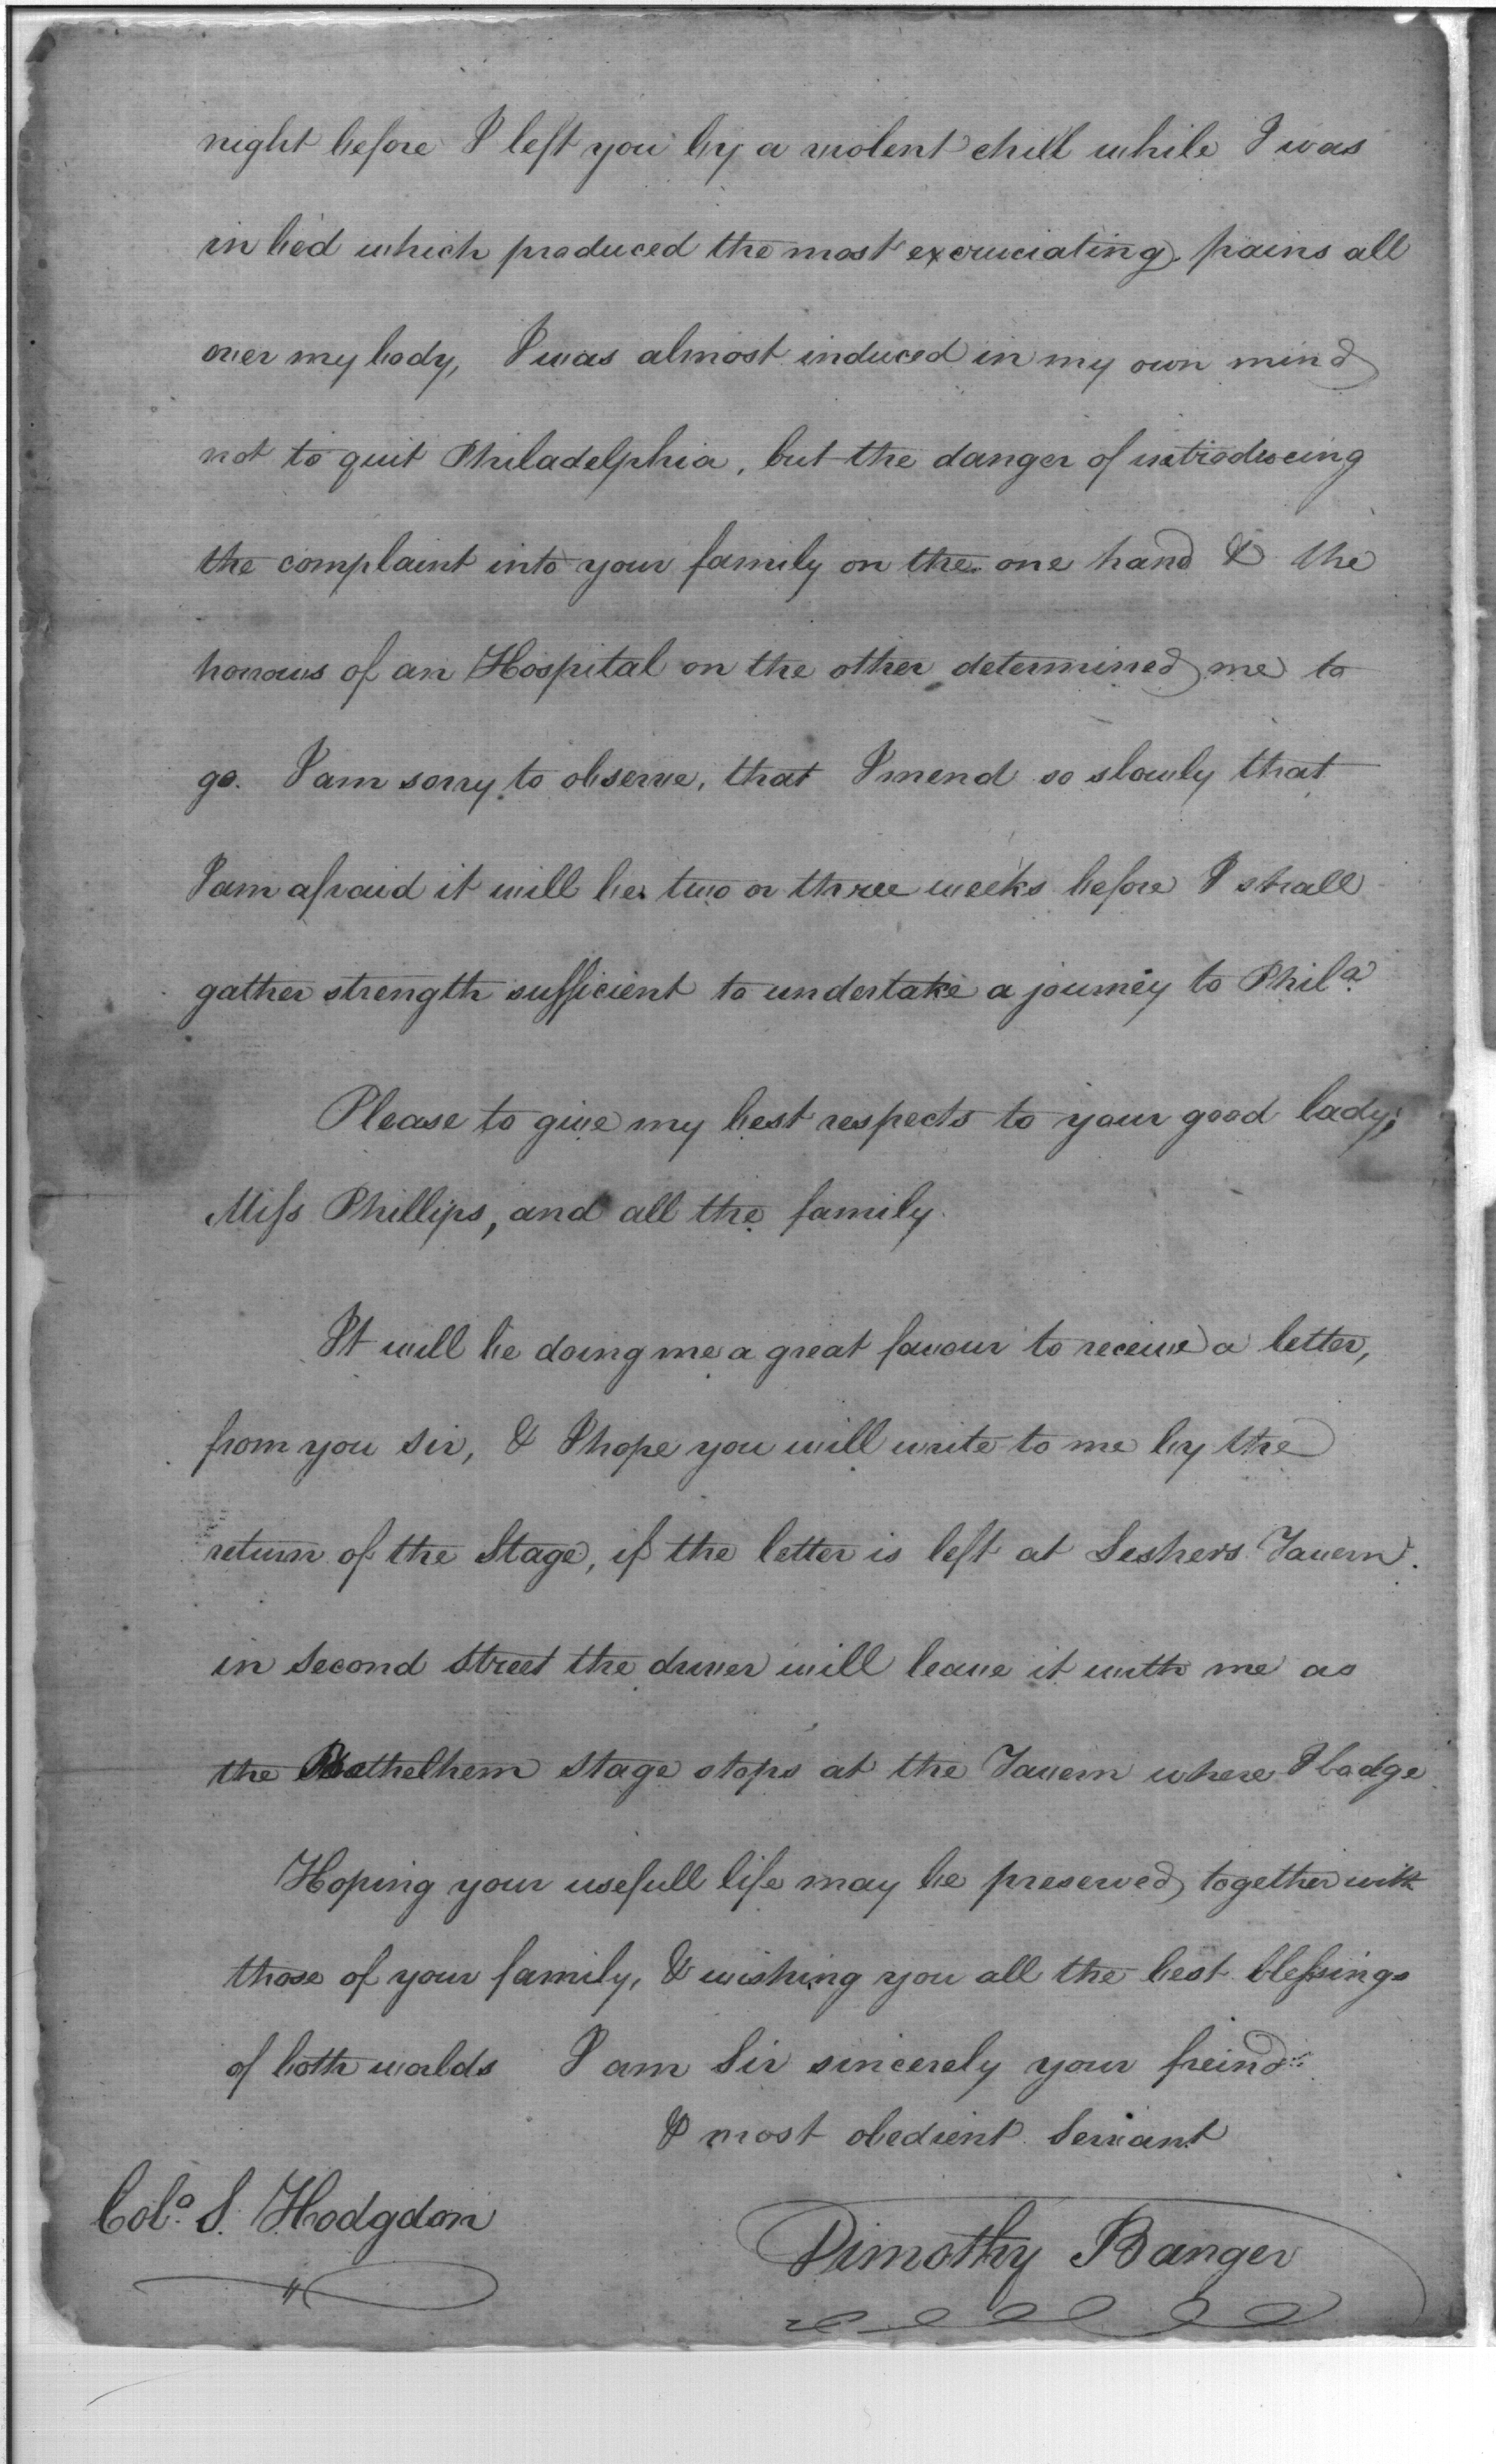 night before I left you by a violent chill while I was
in bed which produced the most excruciating pains all
over my body, I was almost induced in my own mind
not to quit Philadelphia, but the danger of introducing
the complaint into your family on the one hand & the
horrours of an Hospital on the other determined me to
go. I am sorry to observe, that I mend so slowly that
I am afraid it will be two or three weeks before I shall
gather strength sufficient to undertake a journey to Phila.
Please to give my best respects to your good lady,
Miss Phillips, and all the family.
It will be doing me a great favour to receive a letter,
from you Sir, & I hope you will write to me by the
return of the Stage, if the letter is left at Seshers Tavern
in Second Street the driver will leave it with me as
the Bethelhem Stage stops at the Tavern where I lodge
Hoping your usefull life may be preserved together with
those of your family, & wishing you all the best blessings
of both worlds I am Sir sincerely your freind
& most obedient Servant
Colo. S. Hodgdon
Timothy Banger